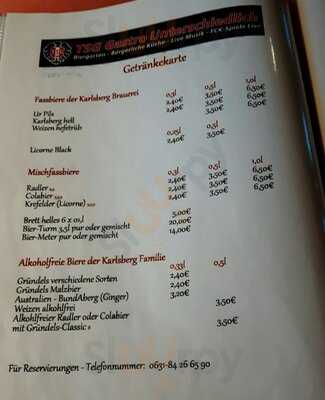 TSG Gastro Unterschiedlich
Biergarten - Bürgerliche Küche - Live Musik - FCK-Spiele Live
Getränkekarte
Fassbiere der Karlsberg Brauerei 0,3l 0,5l 1,0l
Ur Pils 2,40€ 3,50€ 6,50€
Karlsberg hell 2,40€ 3,50€ 6,50€
Weizen hefetrüb 3,50€
0,25l 0,5l
Licorne Black 2,40€ 3,50€
Mischfassbiere 0,3l 0,5l 1,0l
Radler 2,40€ 3,50€ 6,50€
Colabier 2,40€ 3,50€ 6,50€
Krefelder (Licorne) 2,40€ 3,50€ 6,50€
Brett helles 6 x 0,1l 5,00€
Bier-Turm 3,5l pur oder gemischt 20,00€
Bier-Meter pur oder gemischt 14,00€
Alkoholfreie Biere der Karlsberg Familie 0,33l 0,5l
Gründels verschiedene Sorten 2,40€
Gründels Malzbier 2,40€
Australien - BundAberg (Ginger) 3,20€
Weizen alkoholfrei 3,50€
Alkoholfreier Radler oder Colabier
mit Gründels-Classic 3,50€
Für Reservierungen - Telefonnummer: 0631-84 26 65 90